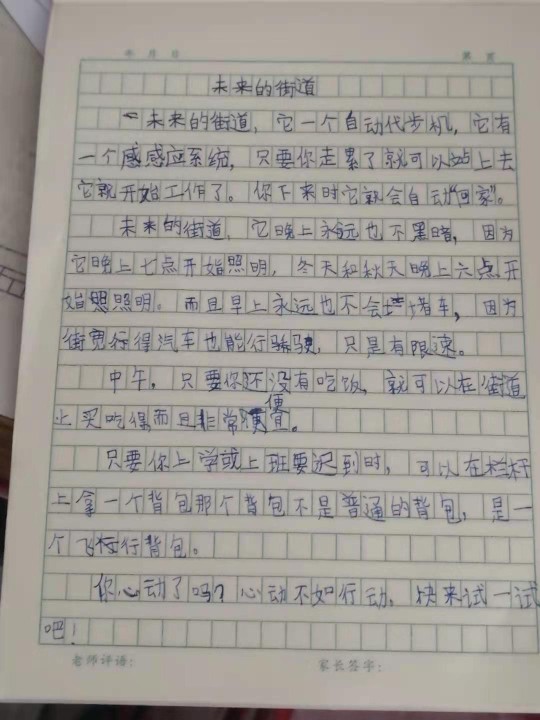 年 月 日 第 页
未来的街道
未来的街道,它一个自动代步机,它有
一个感感应系统,只要你走累了就可以站上去
它就开始工作了。你下来时它就会自动“回家”。
未来的街道,它晚上永远也不黑暗,因为
它晚上七点开始照明,冬天和秋天晚上六点开
始照照明。而且早上永远也不会堵车,因为
街宽得汽车也能行驶,只是有限速。
中午,只要你还没有吃饭,就可以在街道
上买吃得而且非常便宜。
只要你上学或上班要迟到时,可以在栏杆
上拿一个背包那个背包不是普通的背包,是一
个飞行背包。
你心动了吗?心动不如行动,快来试一试
吧!
老师评语: 家长签字: